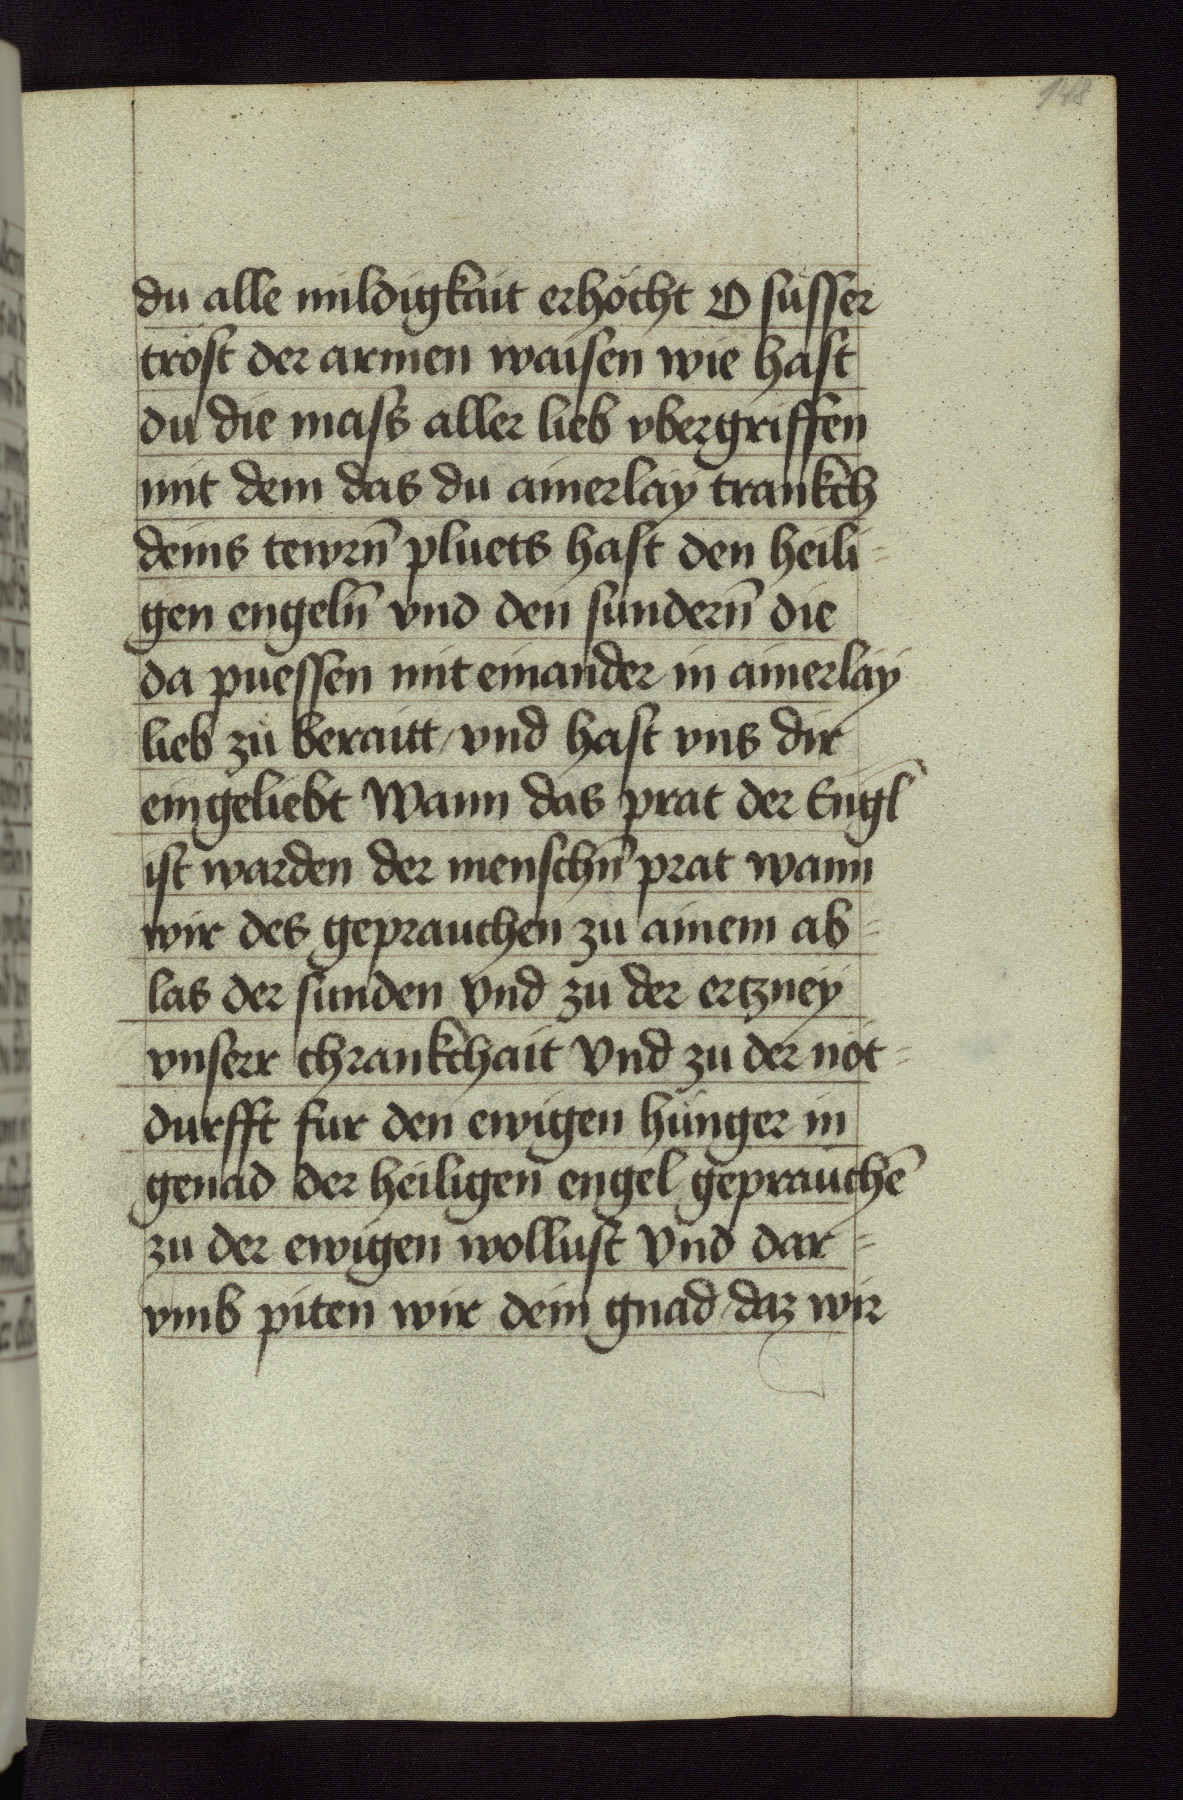 148
du alle mildigkait erhöcht O süsser
trost der armen waisen wie hast
du die mass aller lieb vbergriffen
mit dem das du ainerlay trankch
deins tewrn̄ pluets hast den heili-
gen engeln̄ vnd den sundern̄ die
da puessen mit einander in ainerlay
lieb zu beraitt / vnd hast vns dir
eingeliebt Wann das prat der Engl̄
ist warden der menschn̄ prat wann
wir des geprauchen zu ainem ab-
las der sunden Vnd zu der ertzney
vnserr chrankchait Vnd zu der not-
durfft fur den ewigen hunger in
genad der heiligen engel geprauchē
zu der ewigen wollust Vnd dar-
vmb piten wir dein gnad / daz wir